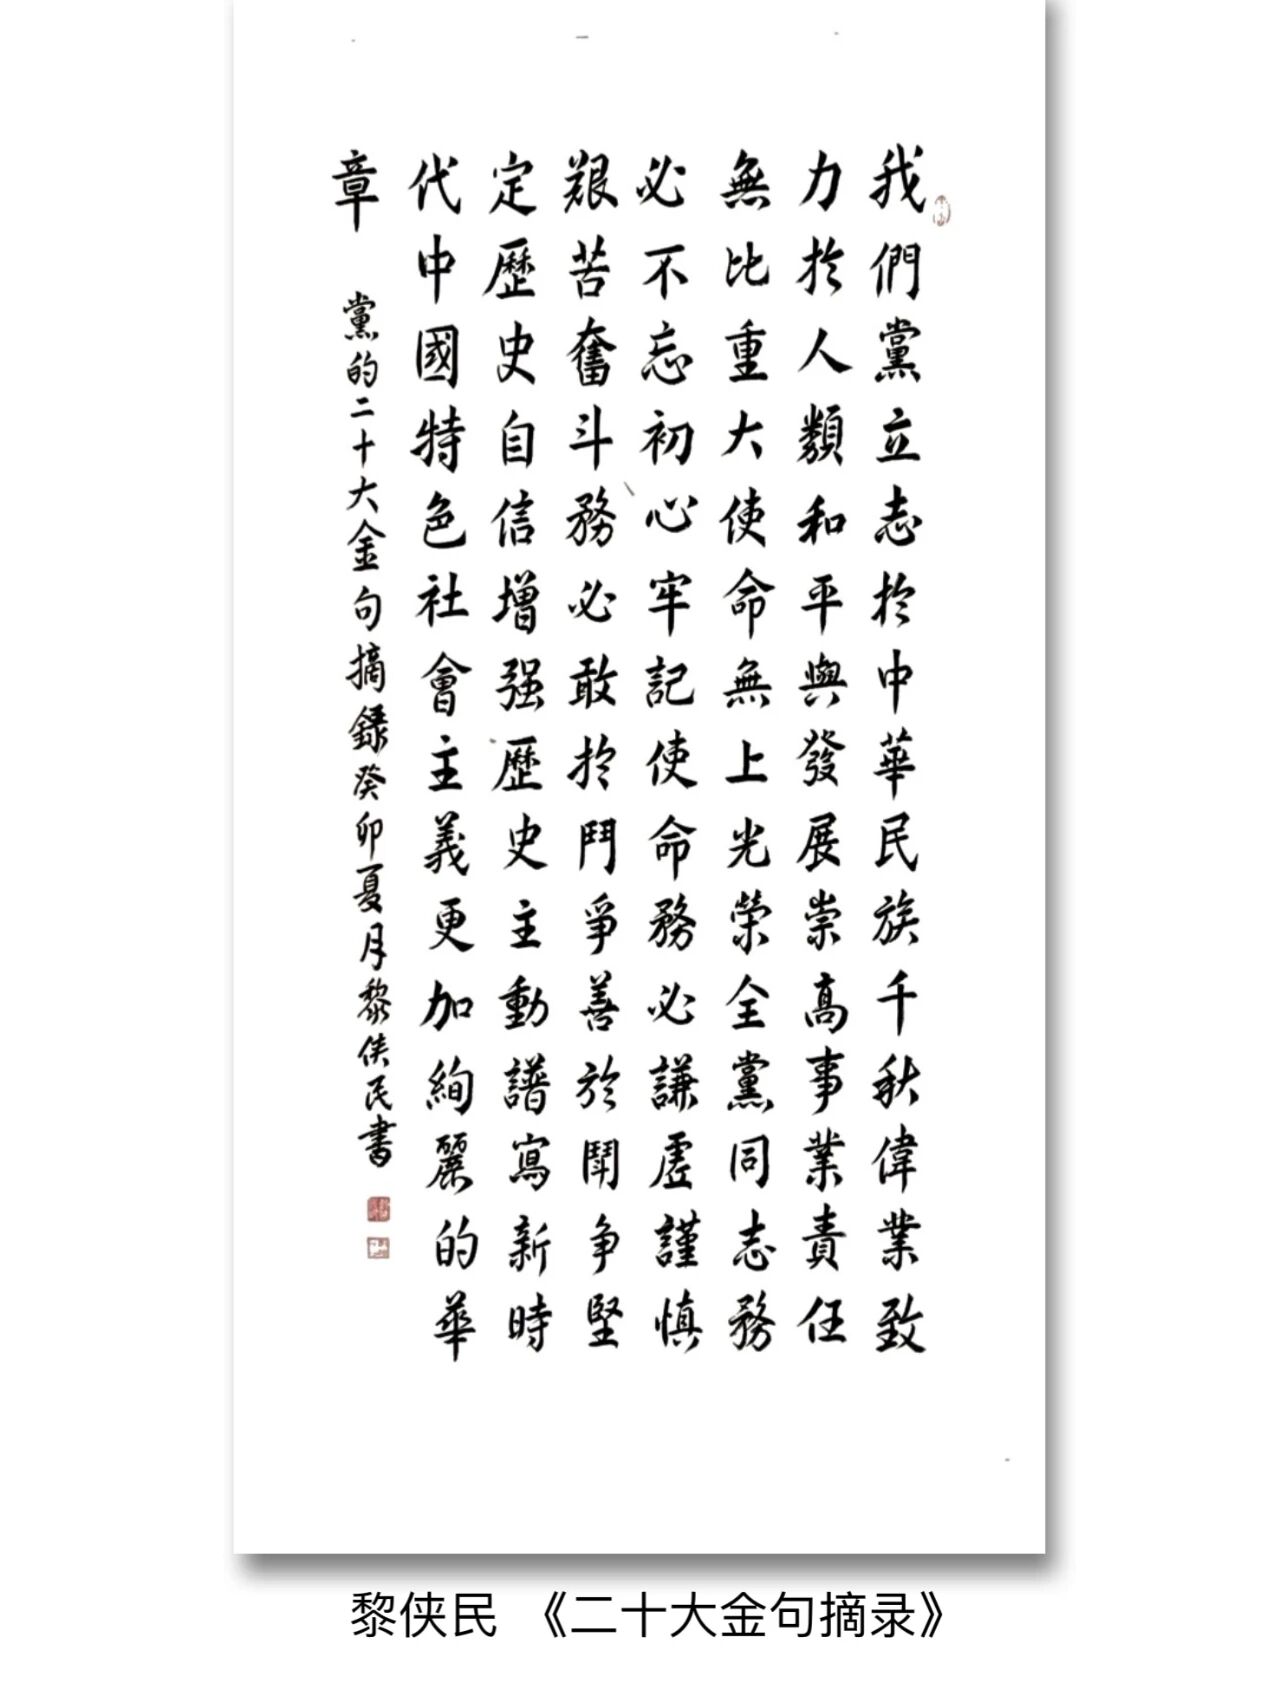 我們黨立志於中華民族千秋偉業致
力於人類和平與發展崇高事業責任
無比重大使命無上光榮全黨同志務
必不忘初心牢記使命務必謙虛謹慎
艱苦奮斗務必敢於鬥爭善於鬪争堅
定歷史自信增强歷史主動譜寫新時
代中國特色社會主義更加絢麗的華
章
黨的二十大金句摘録癸卯夏月黎侠民書
黎侠民 《二十大金句摘录》